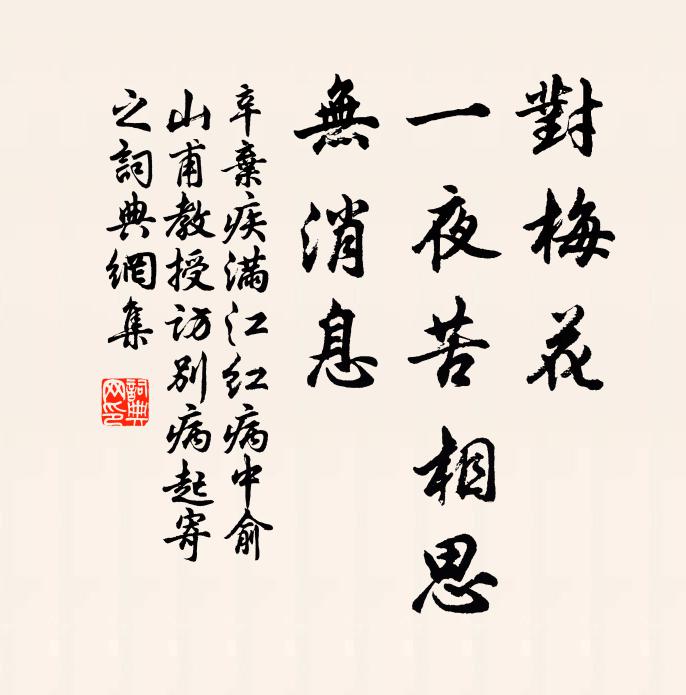 對梅花
一夜苦相思
無消息
辛棄疾滿江红病中俞
山甫教授访别病起寄
之詞典網集
詞典
网印